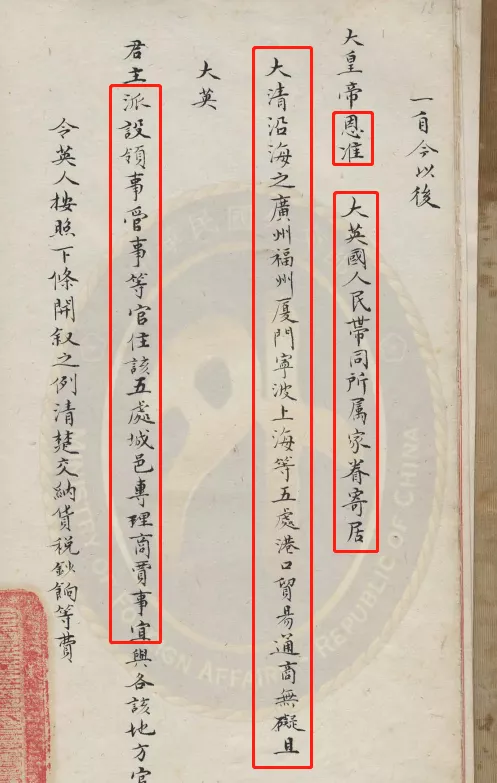 一自今以後
大皇帝恩准 大英國人民帶同所屬家眷寄居
大清沿海之廣州福州厦門寧波上海等五處港口貿易通商無礙且
大英
君主派設領事管事等官住該五處城邑專理商賈事宜與各該地方官
令英人按照下條開敘之例清楚交納貨稅鈔餉等費
REPUBLIC OF CHINA
FOREIGN AFFAIRS